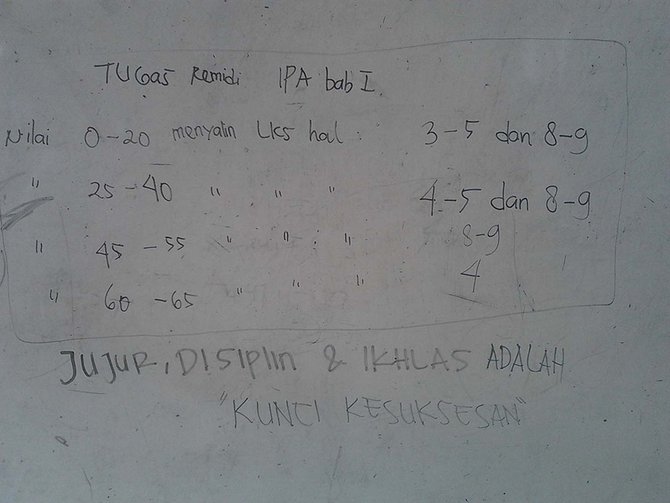 TUGas Remidi IPA bab I
Nilai 0-20 menyalin LKS hal : 3-5 dan 8-9
" 25-40 " " " 4-5 dan 8-9
" 45-55 " " " 8-9
" 60-65 " " " 4
JUJUR, DISIPlin & IKHLAS ADALAH
"KUNCI KESUKSESAN"